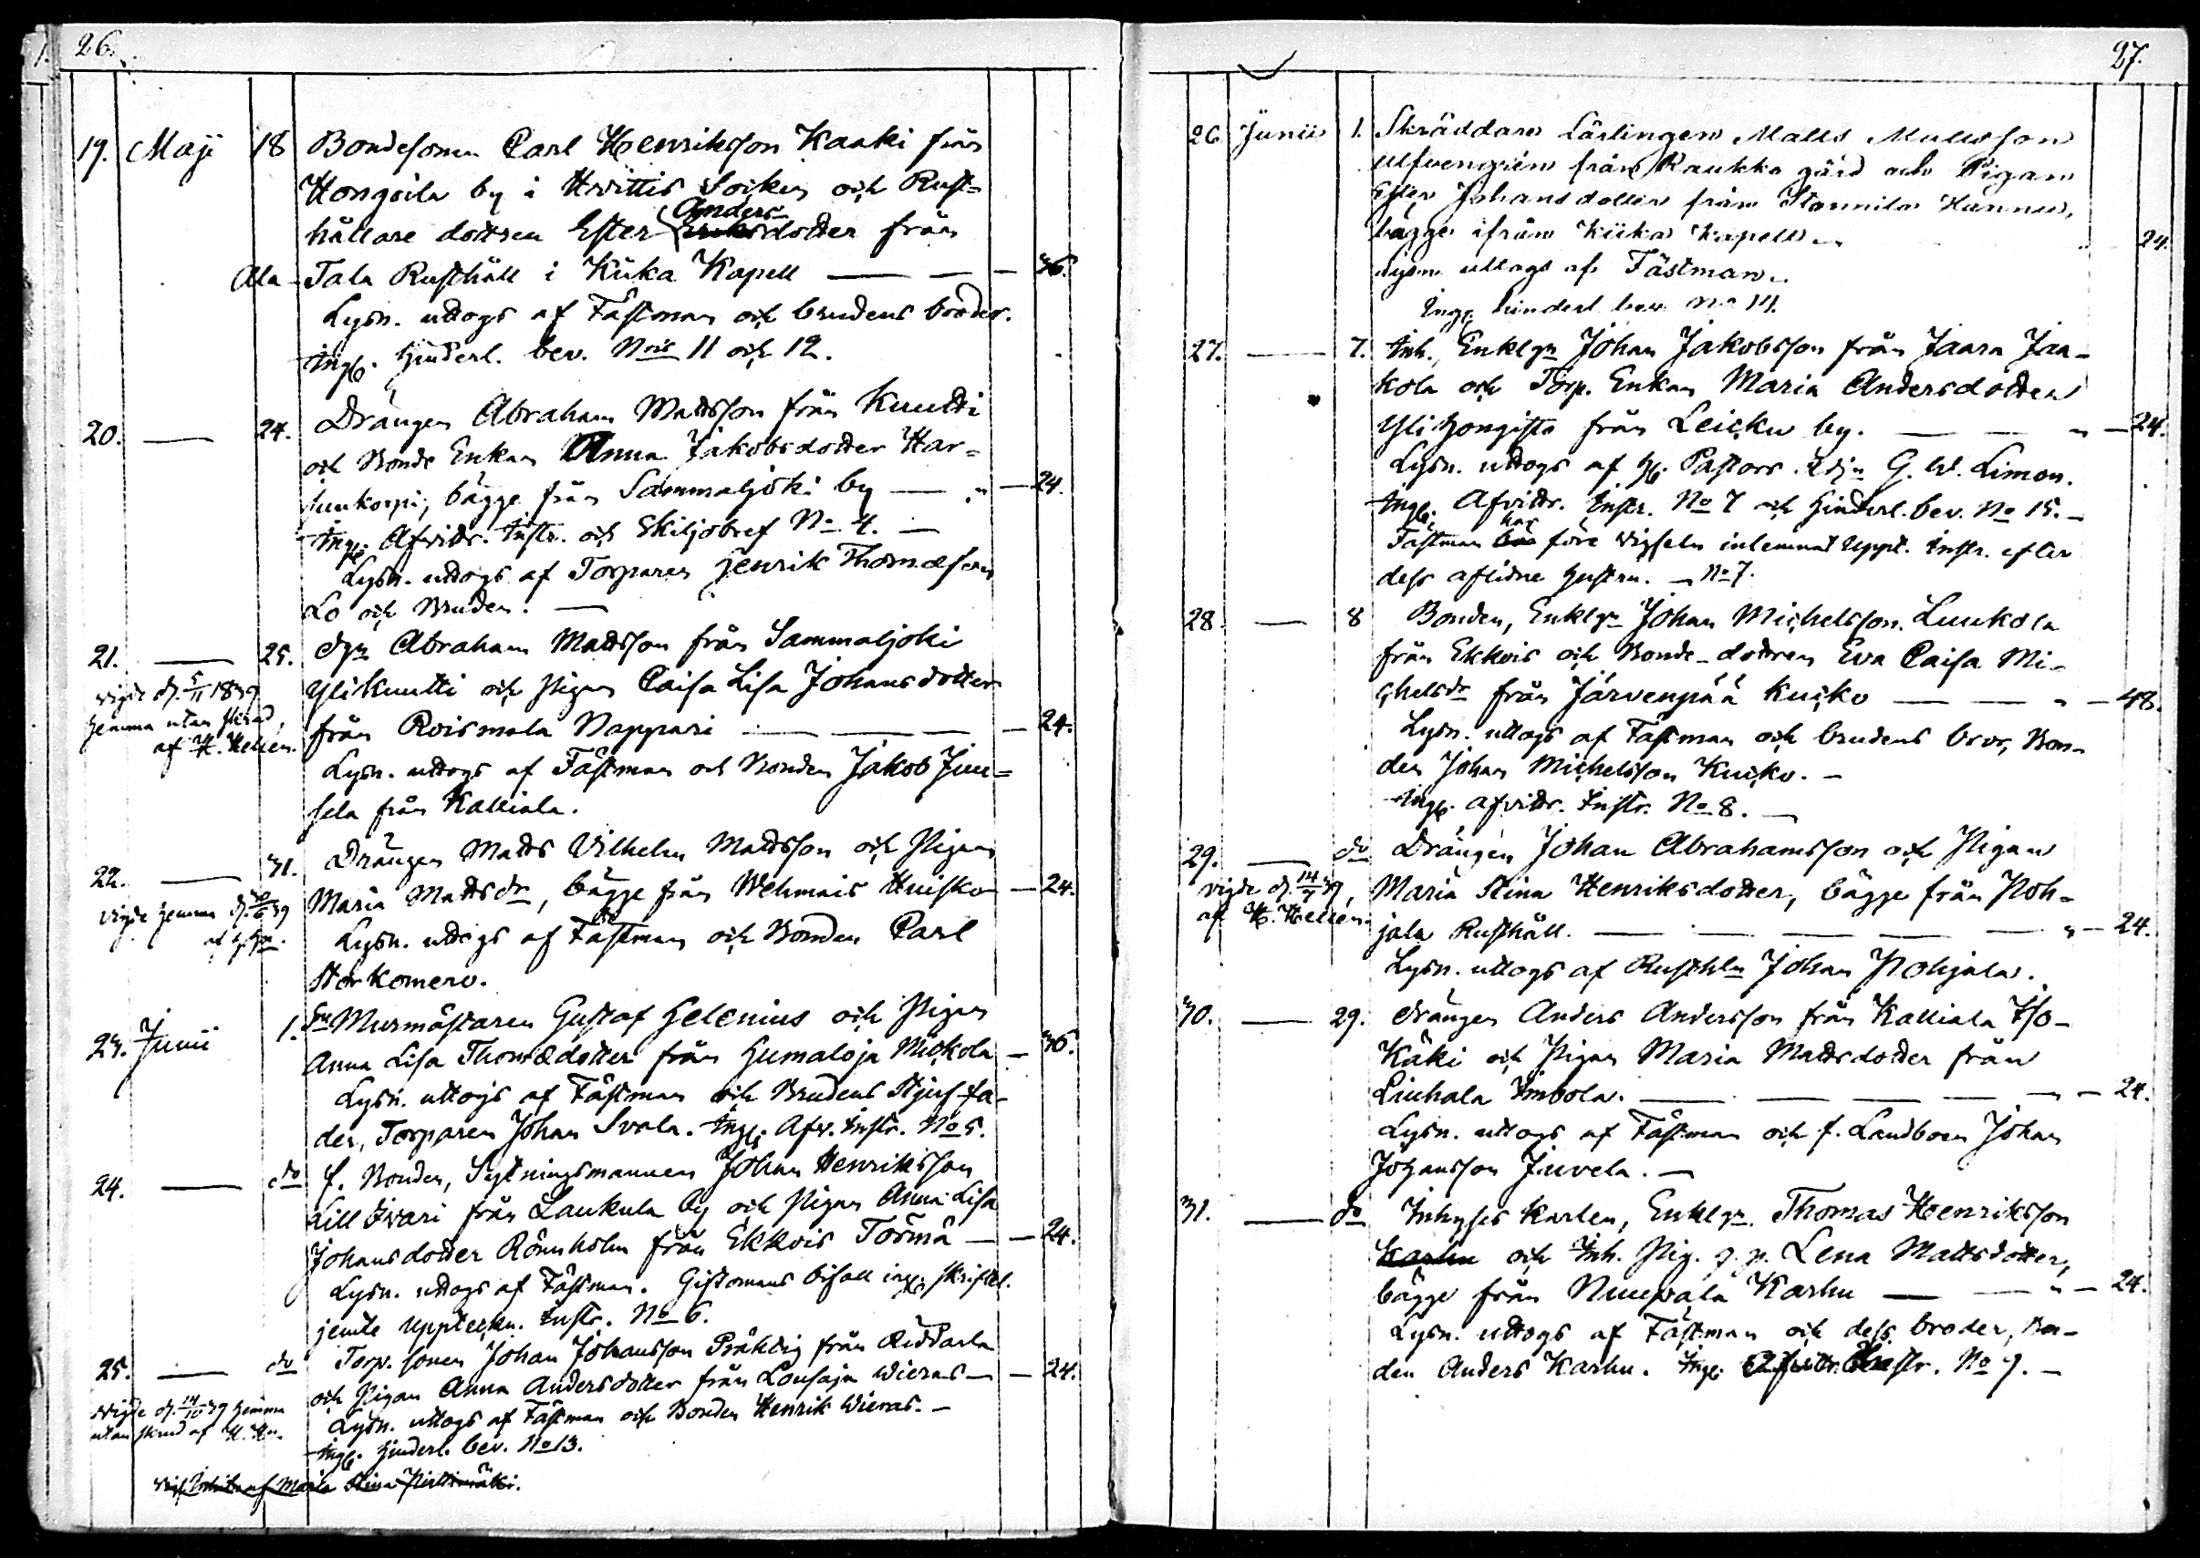 26.
19. Maji 18 Bondesonen Carl Henriksson Kaaki från
Hongoila by i Hvittis Sokn och Rust=
Anders
hållare dottren Ester dotter från
Ala-Tala Rusthåll i Kiika Kapell — — — 36.
Lysn. uttogs af Fästman och brudens broder.
Ingl. Hinderl. bev. N:ris 11 och 12.
20. — 24. Drängen Abraham Mattsson från Kuutti
och Bonde Enkan Anna Jakobsdotter Har=
juukorpi, bägge från Sammaljoki by — " — 24.
Ingl. Afvittr. Instr. och Skiljobref No 4. —
Lysn. uttogs af Torparen Henrik Thomæson
Lo och Bruden. —
21. — 25. Dgn Abraham Mattsson från Sammaljoki
vigde d. 5/11 1839
Ylikuutti och Pigan Caisa Lisa Johansdotter
hemma utan skrud,
från Roismala Nappari — — — — 24.
af H. Hellén.
Lysn. uttogs af Fästman och Bonden Jakob Juu=
sela från Kalliala.
22. — 31. Drängen Matts Vilhelm Mattsson och Pigan
Maria Mattsdr, bägge från Wehmais Huisko — 24.
vigde hemma d. 39
Lysn. uttogs af Fästman och Bonden Carl
Storkomero.
23. Junii 1. Murmästaren Gustaf Helenius och Pigan
Anna Lisa Thomædotter från Humaloja Mickola — 36.
Lysn. uttogs af Fästman och Brudens Stjuf-fa-
der, Torparen Johan Svala. Ingl. Afv. Instr. No 5.
24. — do f. Bonden, Sytningsmannen Johan Henriksson
Lill Iivari från Laukula by och Pigan Anna Lisa
Johansdotter Rönnholm från Ekkois Törmä — — 24.
Lysn. uttogs af Fästman. Giftomans bifall ingl. skriftel.
jemte uppteckn. Instr. No 6.
25. — do Torp. sonen Johan Johansson Präktig från Ridvala
och Pigan Anna Andersdotter från Lousaja Wieras — — 24.
vigde d. 14/10 39 hemma
Lysn. uttogs af Fästman och Bonden Henrik Wieras. —
utan skrud af H. Hn.
Ingl. Hinderl. bev. No 13.
Maria Stina
27.
26 Junii 1. Skräddare Lärlingen Matts Mattsson
Ulfvengren från Kaukka gård och Pigan
Ester Johansdotter från Stormila Hannu,
bägge ifrån Kiika Kapell — " 24.
Lysn. uttogs af Fästman.
Ingl. hinderl. bev. No 14.
27. — 7. Inh. Enklgn Johan Jakobsson från Jaara Jaa-
kola och Torp. Enkan Maria Andersdotter
Ylihongisto från Leicku by. — — " — 24.
Lysn. uttogs af H. Pastors Adjn G. W. Limon.
Ingl. Afvittr. Instr. No 7 och Hinderl. bev. No 15. —
har
Fästman före vigseln inlemnat Uppt. Instr. efter
dess aflidne hustru. — No 7.
28. — 8 Bonden, Enklgn Johan Michelsson Luukola
från Ekkois och Bonde-dottren Eva Caisa Mi-
chelsdr från Järvenpää Kucko — — " — 48.
Lysn. uttogs af Fästman och brudens bror, Bon-
den Johan Michelsson Kucko. —
Ingl. afvittr. Instr. No 8. —
29. — do Drängen Johan Abrahamsson och Pigan
vigde d. 14/7 39,
Maria Stina Henriksdotter, bägge från Poh-
af H. Hellén.
jala Rusthåll. — — — — — " — 24.
Lysn. uttogs af Rusthln Johan Pohjala.
30. — 29. Drängen Anders Andersson från Kalliala Iso-
Käki och Pigan Maria Mattsdotter från
Liuhala Simbola. — — — — — — 24.
Lysn. uttogs af Fästman och f. Landboen Johan
Johansson Juvela. —
31. — do Inhyses karlen, Enklgn. Thomas Henriksson
Karhu och Inh. Pig. s. p. Lena Mattsdotter,
bägge från Nuupala Karhu — — " — 24.
Lysn. uttogs af Fästman och dess broder, Bon-
den Anders Karhu. Ingl. Afvittr. Instr. No 9. —